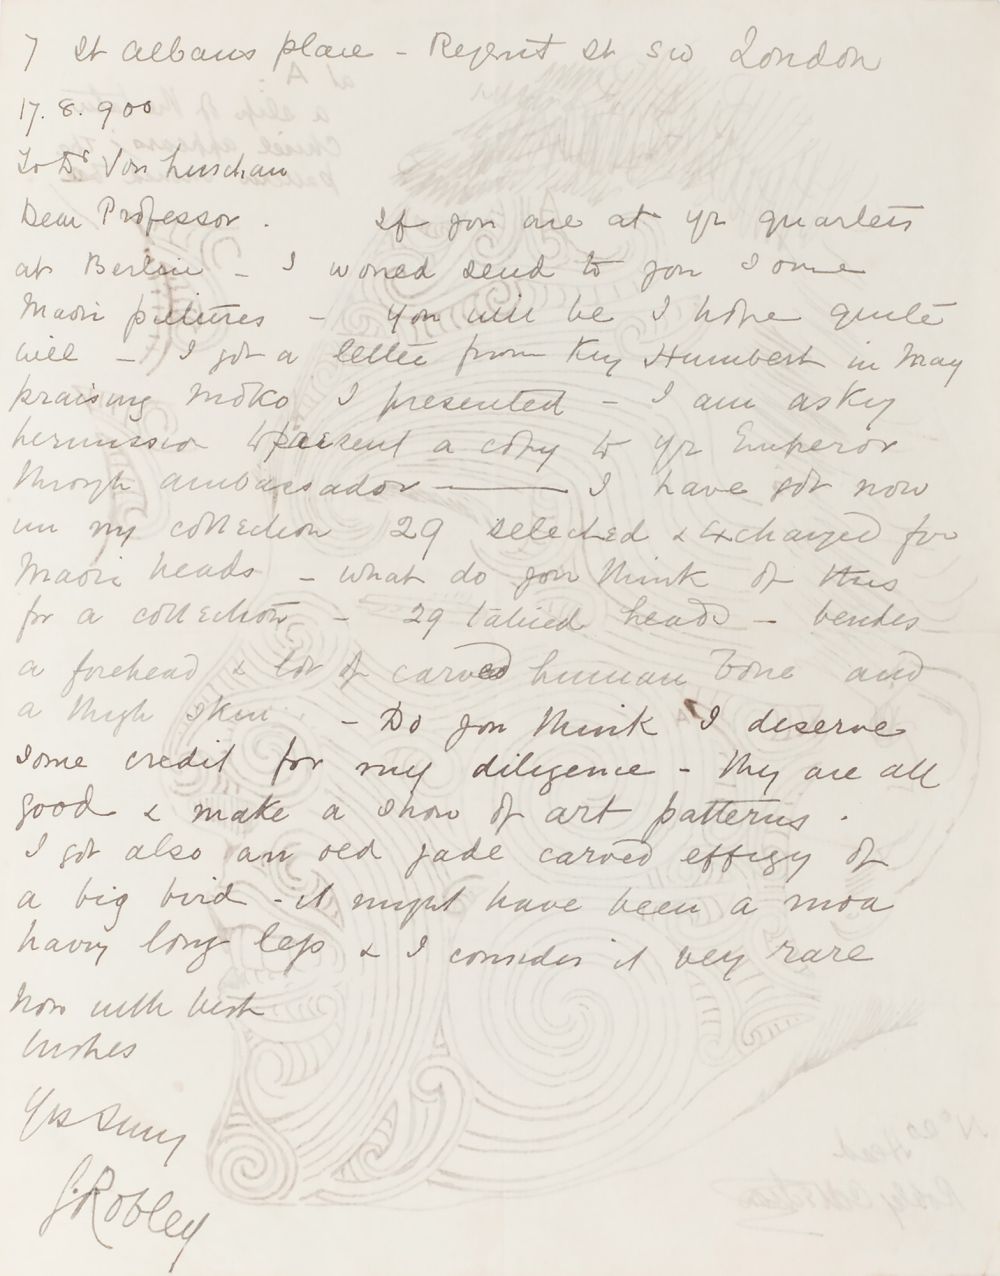 7 St Albans place - Regent St SW London
17.8.900
To Dr Von Luschan
Dear Professor. If you are at yr quarters
at Berlin - I would send to you some
Maori pictures - You will be I hope quite
well - I got a letter from King Humbert in May
praising Moko I presented - I am asKg
permission to present a copy to yr Emperor
through ambassador - I have got now
in my collection 29 selected & exchanged for
Maori heads - what do you think of this
for a collection - 29 tatued heads - besides
a forehead & lot of carved human bone and
a thigh skin - Do you think I deserve
some credit for my diligence - They are all
good & make a show of art patterns.
I got also an old jade carved effigy of
a big bird - it might have been a moa
havg long legs & I consider it very rare
Now with best
wishes
Yrs
G. Robley
at A
a slip of
Chief appears
No 20
Head
Robley Collection